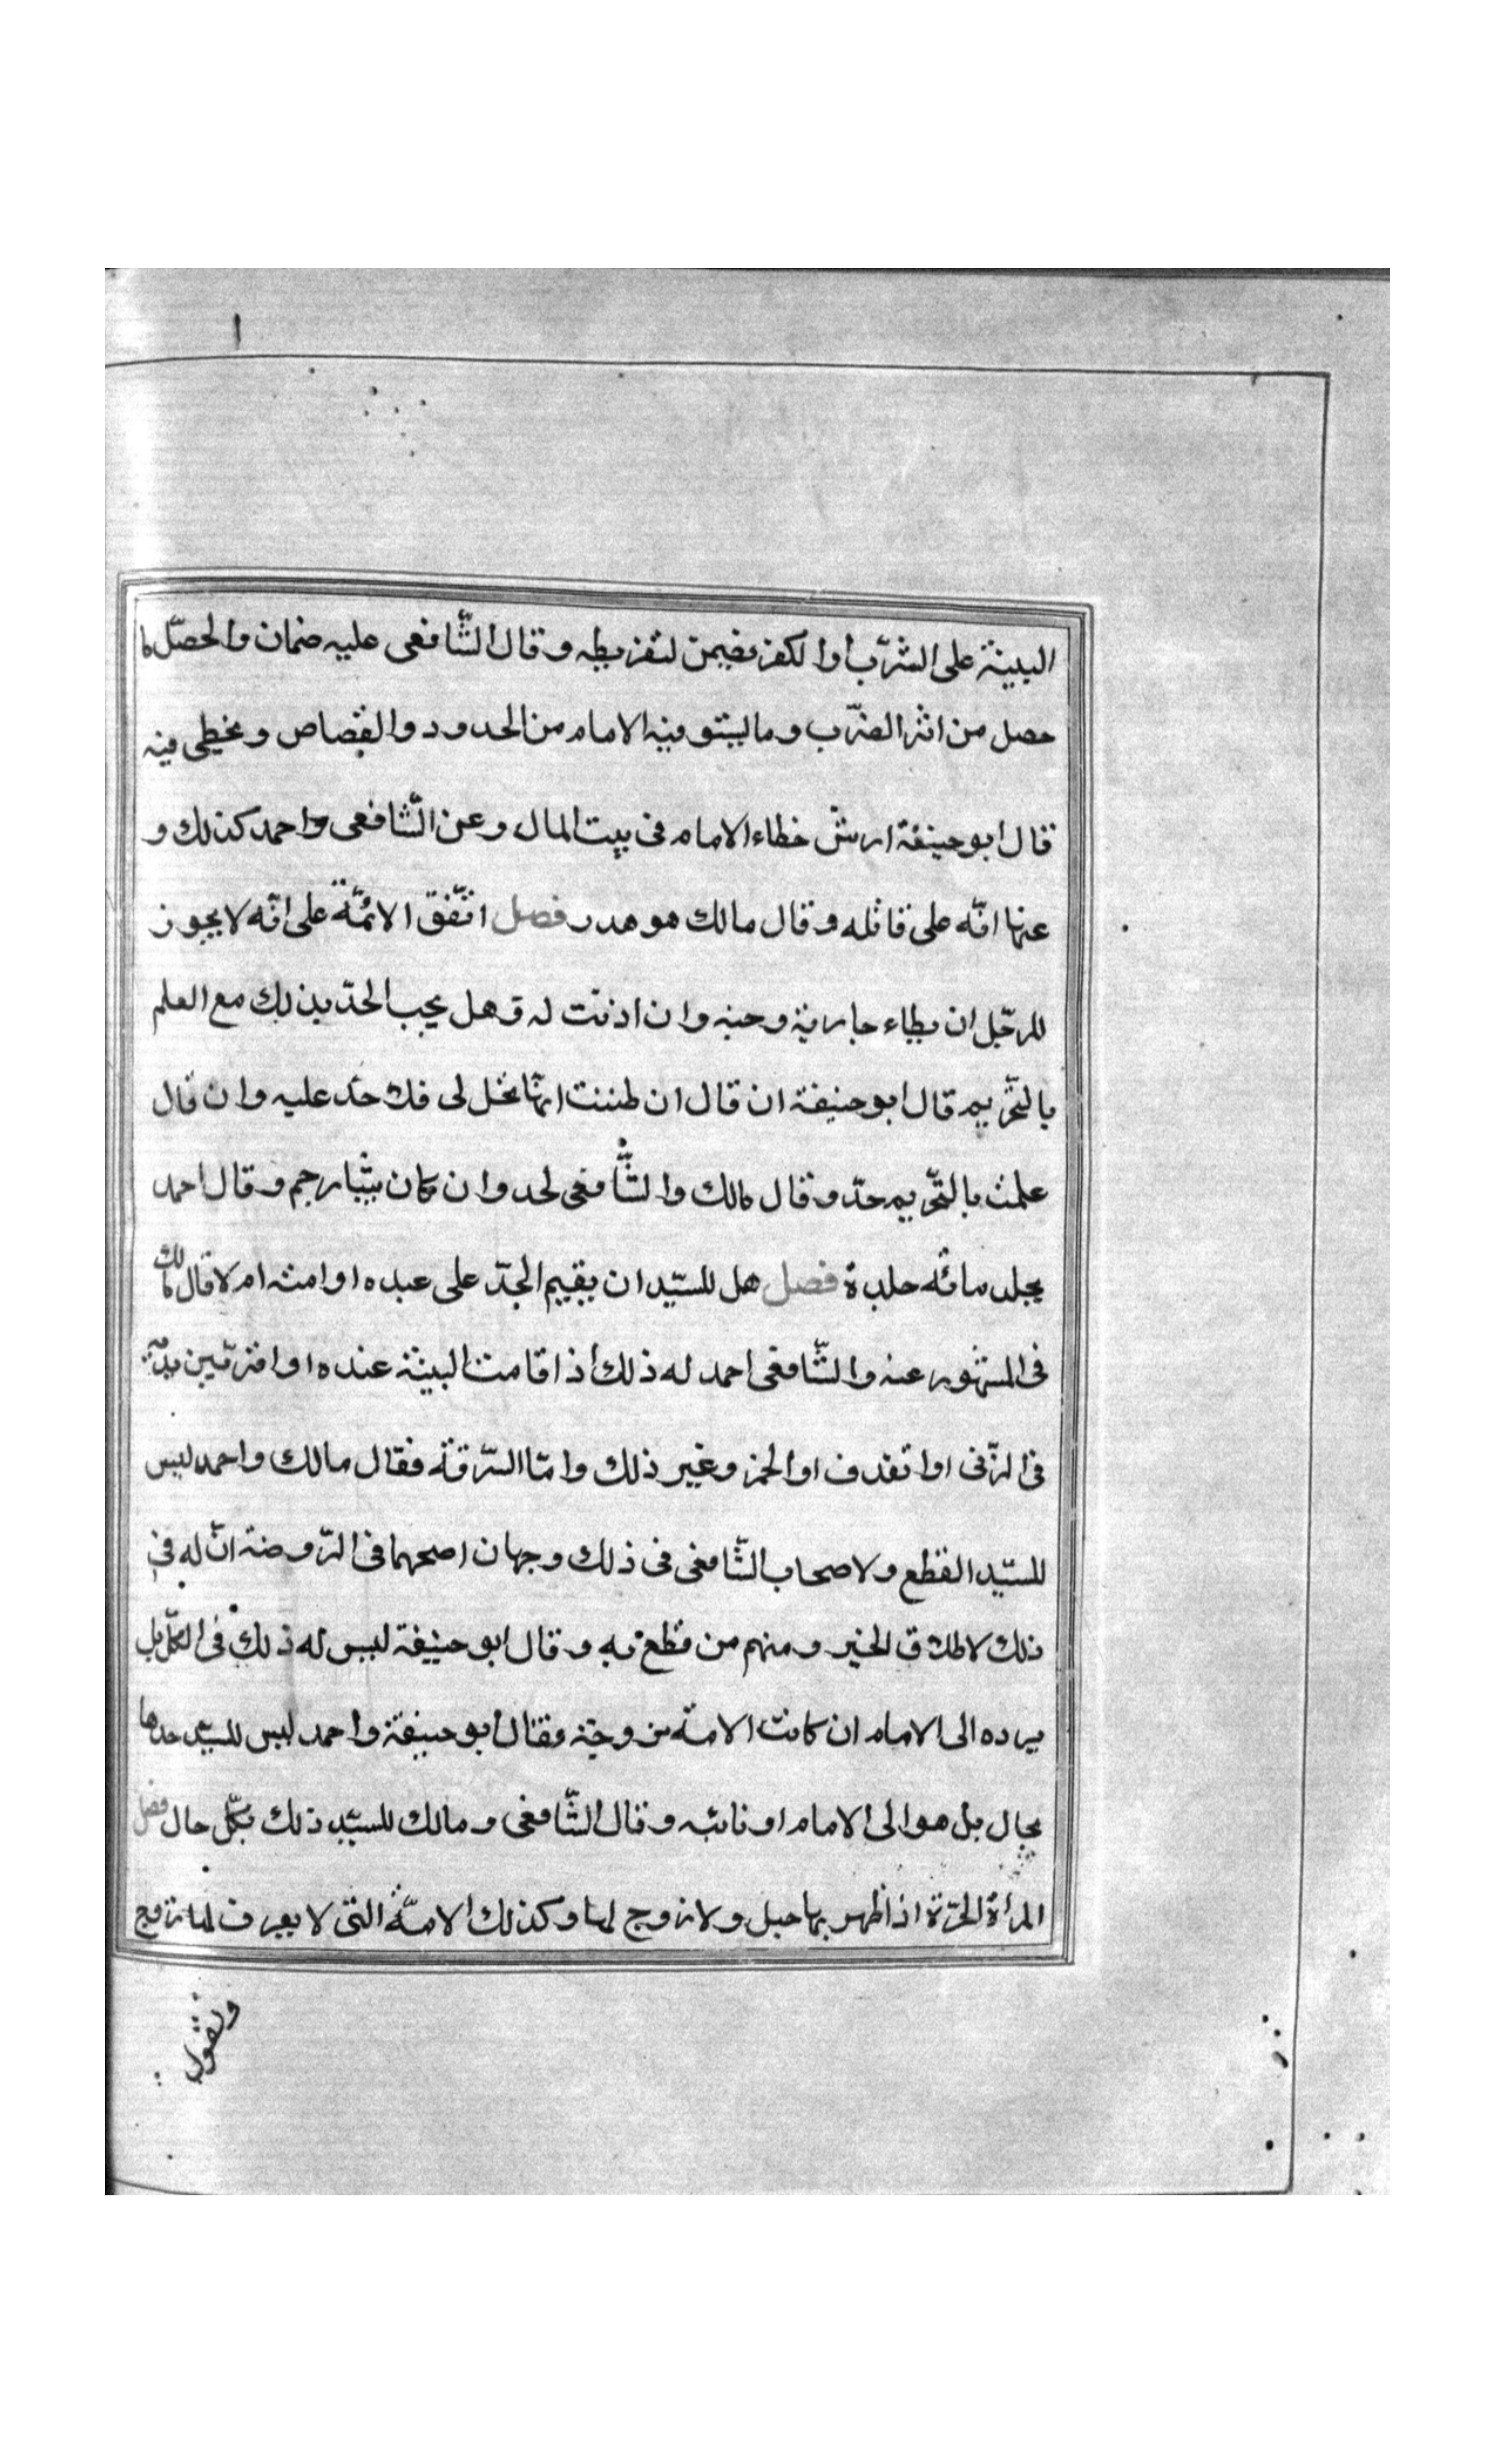 البينة على الشرب او الكفر فيضمن لتفريطه وقال الشافعى عليه ضمان والحصل ما
حصل من اثر الضرب وما يستوفيه الامام من الحدود والقصاص ويخطى فيه
قال ابو حنيفة ارش خطاء الامام فى بيت المال وعن الشافعى واحمد كذلك و
عنهما انه على قاتله وقال مالك هو هدر فصل اتفق الائمة على انه لا يجوز
للرجل ان يطاء جارية زوجته وان اذنت له وهل يجب الحد بذلك مع العلم
بالتحريم قال ابو حنيفة ان قال ان ظننت انها تحل لى فلا حد عليه وان قال
علمت بالتحريم حد وقال مالك والشافعى لحد وان كان ثيبا رجم وقال احمد
يجلد مائه جلدة فصل هل للسيد ان يقيم الحد على عبده او امته ام لا قال مالك
فى المشهور عنه والشافعى احمد له ذلك اذا قامت البينة عنده او اقر بين يديه
فى الزنى او القذف او الخمر وغير ذلك واما السرقة فقال مالك واحمد ليس
للسيد القطع ولاصحاب الشافعى فى ذلك وجهان اصحهما فى الروضة ان له فى
ذلك لاطلاق الخبر ومنهم من قطع به وقال ابو حنيفة ليس له ذلك فى الكل بل
يرده الى الامام ان كانت الامة مزوجة فقال ابو حنيفة واحمد ليس للسيد حدها
بحال بل هو الى الامام او نائبه وقال الشافعى ومالك للسيد ذلك بكل حال فصل
المرأة الحرة اذا ظهر بها حبل ولا زوج لها وكذلك الامة التى لا يعرف لها زوج
وتقول